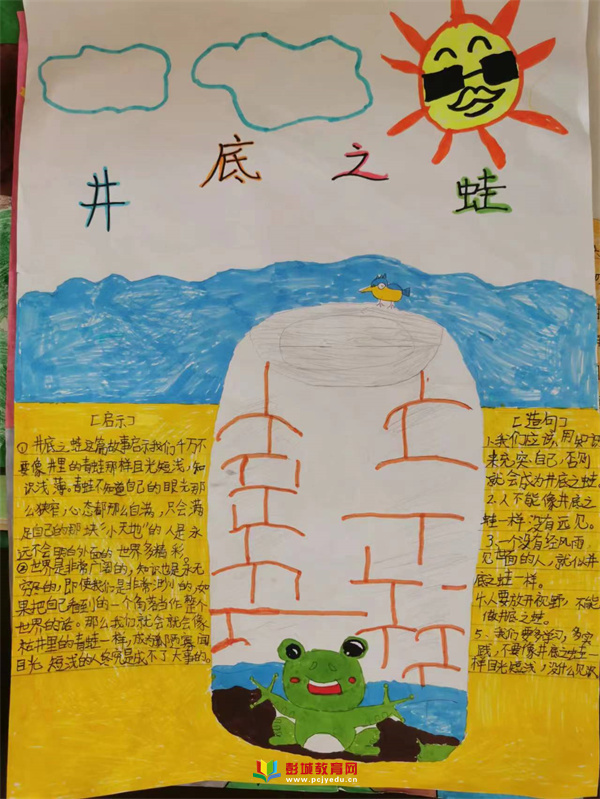 井底之蛙
[启示]
①井底之蛙这篇故事启示我们千万不
要像井里的青蛙那样目光短浅,知
识浅薄。青蛙不知道自己的眼光那
么狭窄,心态都那么自满,只会满
足自己的那块"小天地"的人是永
远不会明白外面的世界多精彩。
②世界是非常广阔的,知识也是永无
穷尽的,即使我们是非常渺小的,如
果把自己看到的一个角落当作整个
世界的话。那么我们就会就会像
枯井里的青蛙一样,成为鄙陋寡闻
目光短浅的人终是成不了大事的。
[造句]
1.我们应该用知识
来充实自己,否则
就会成为井底之蛙。
2.人不能像井底之
蛙一样没有远见。
3.一个没有经风雨
见世面的人,就似井
底之蛙一样。
4.人要放开视野,不能
做井底之蛙。
5.我们要多学习,多实
践,不要像井底之蛙一
样目光短浅,没什么见识
彭城教育网
www.pcjyedu.cn